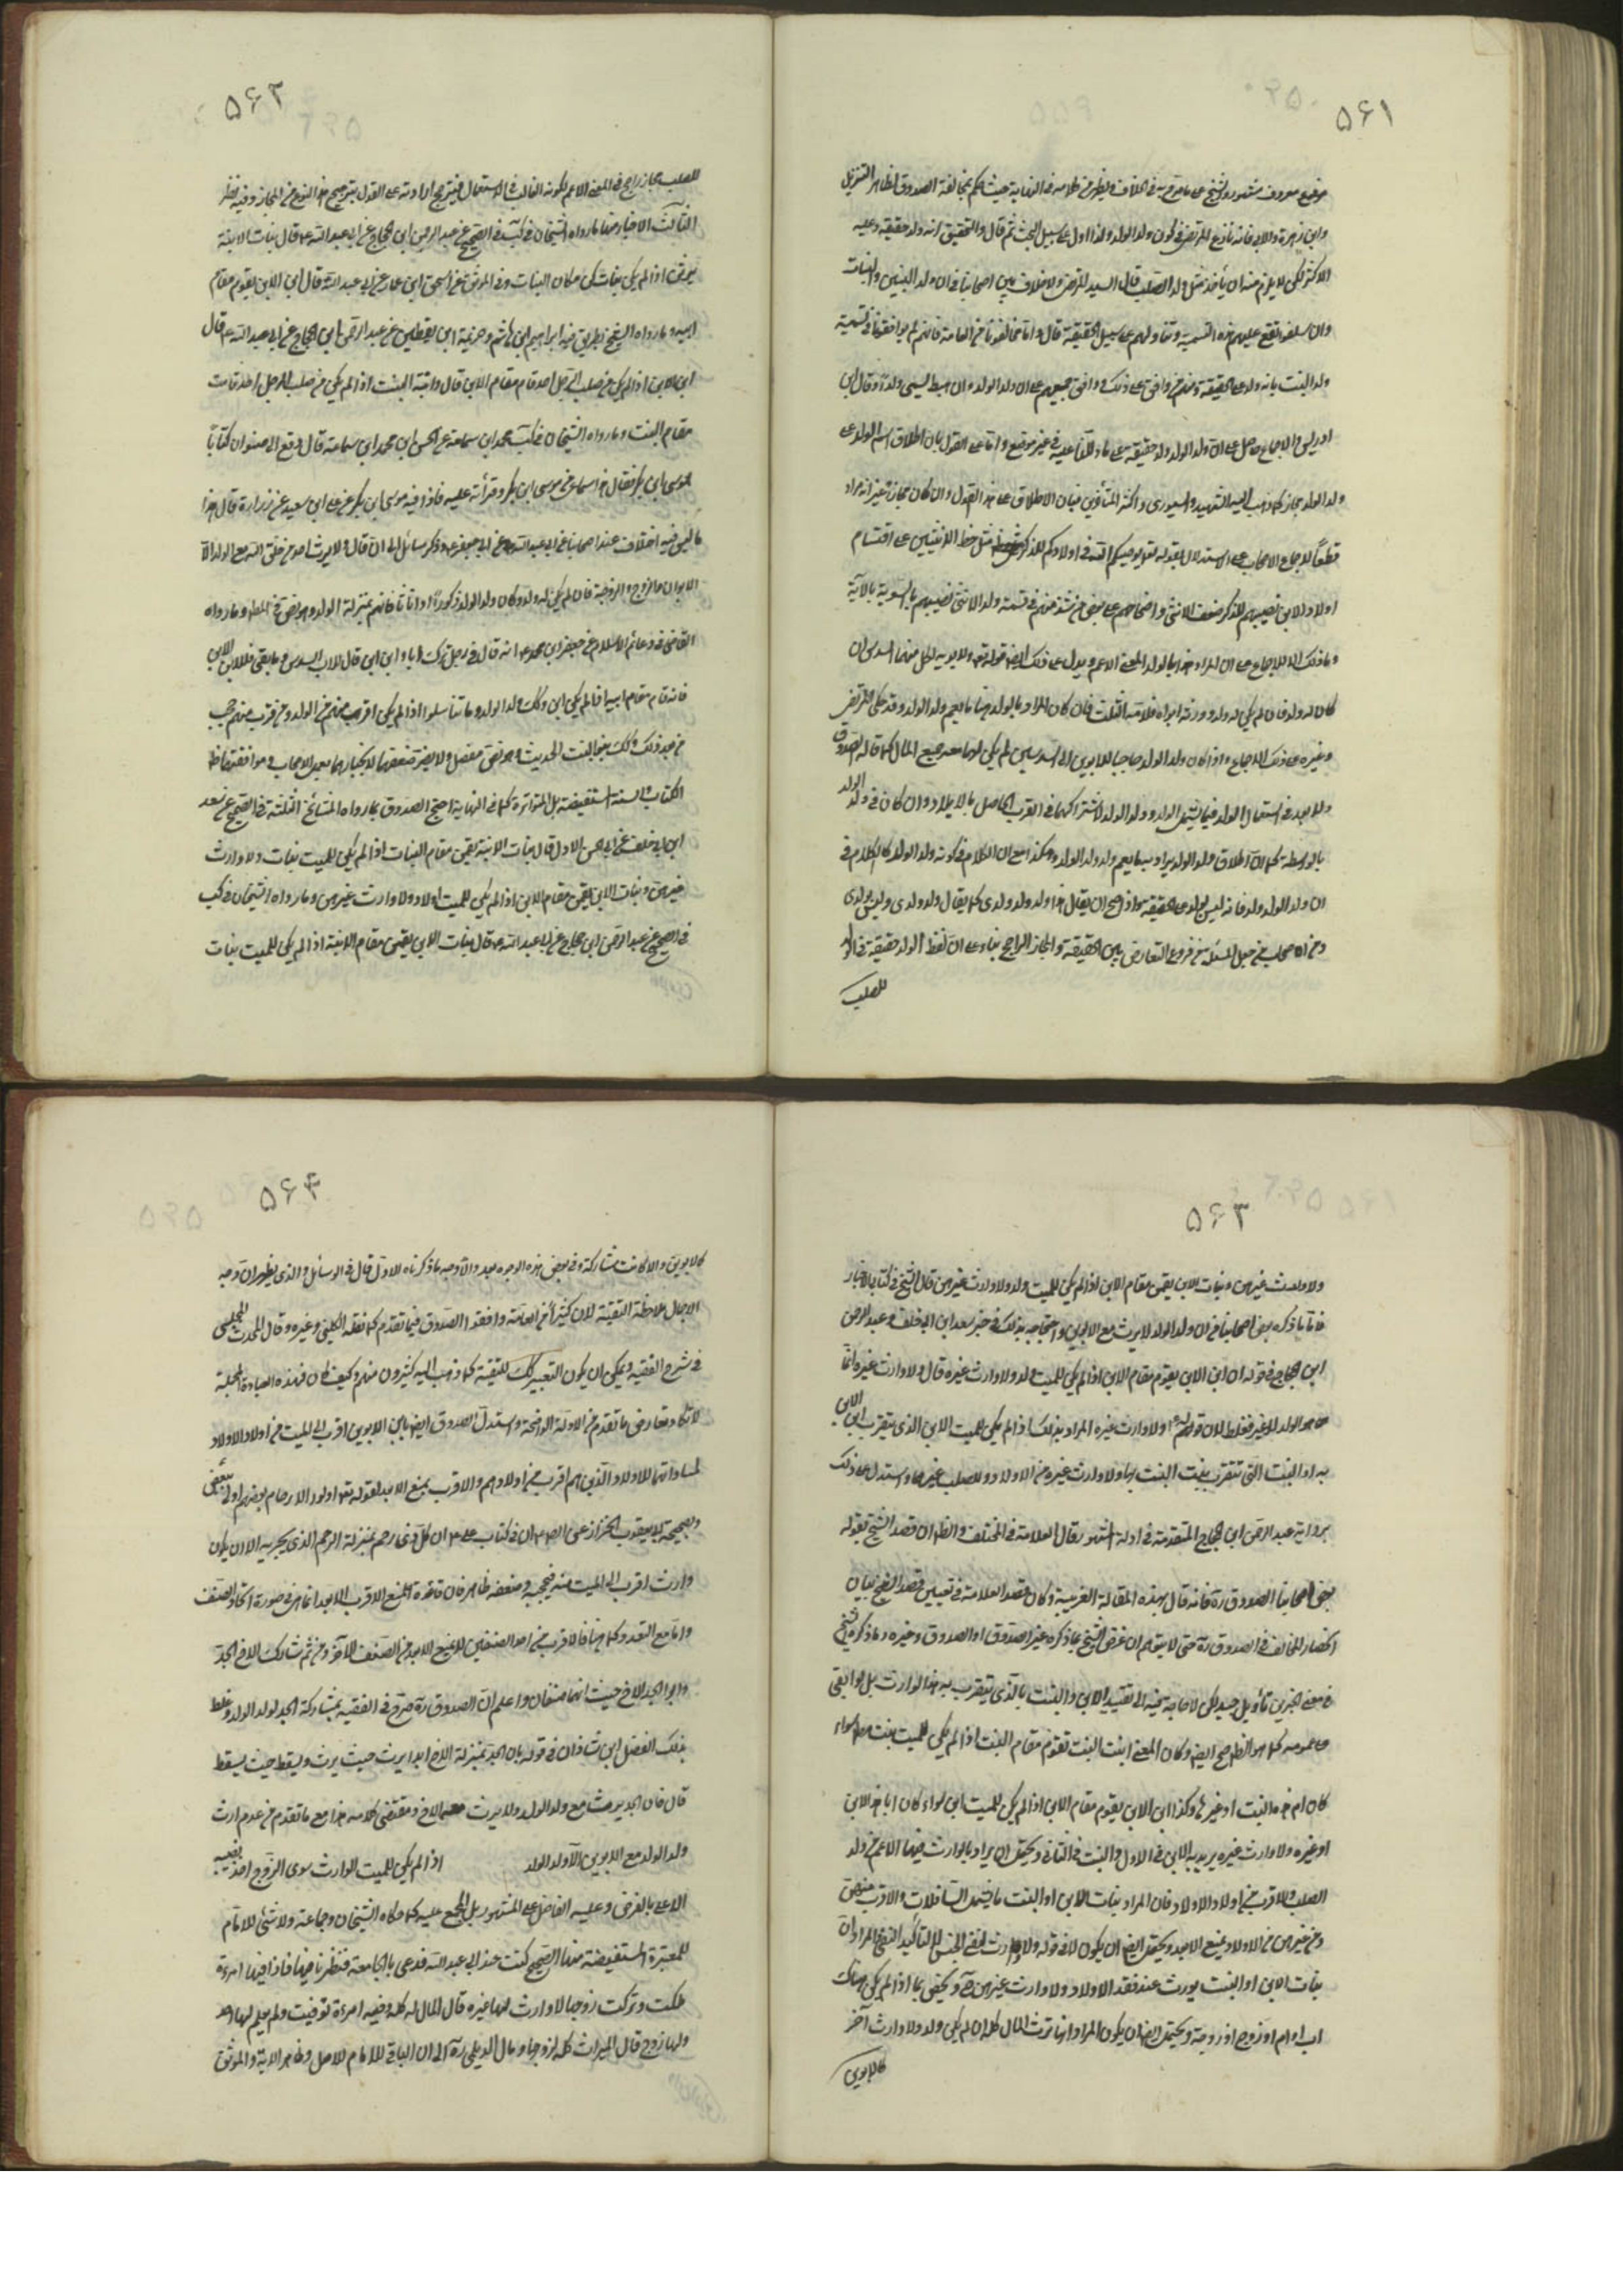 ۵۶۱
موضع معروف مشهور والشيخ على ما مر قربه في الخلاف ويظهر من كلامه في النهاية حيث حكم بمخالفة الصدوق لظاهر التنزيل
وابن زهرة وللابي فانه نازع المرتضى في كون ولد الولد ولدا اولا على سبيل البحث ثم قال والتحقيق انه ولد حقيقة وعليه
الاكثر لكن لا يلزم منه ان يأخذ مثل ولد الصلب قال السيد المرتضى ولا خلاف بين اصحابنا في ان ولد البنين والبنات
وان سفلوا تقع عليهم هذه التسمية وتتناولهم على سبيل الحقيقة قال واما مخالفونا من العامة فانهم لم يوافقونا في تسمية
ولد البنت بانه ولد على الحقيقة ومنهم من وافق على ذلك ووافق جميعهم على ان ولد الولد وان هبط يسمى ولدا وقال ابن
ادريس والاجماع حاصل على ان ولد الولد ولد حقيقة على ما دللنا عليه في غير موضع واما على القول بان اطلاق اسم الولد على
ولد الولد مجاز كما ذهب اليه الشهيد والسيوري واكثر المتأخرين فبان الاطلاق على هذا القول وان كان مجازا غير انه مراد
قطعا لاجماع الاصحاب على الاستدلال بقوله تع يوصيكم الله في اولادكم للذكر مثل حظ الانثيين على اقتسام
اولاد الابن نصيبهم للذكر ضعف الانثى واضحابهم على بعض من شذ منهم في قسمة ولد الانثى نصيبهم بالسوية بالآية
وما ذلك الا للاجماع على ان المراد هنا بالولد المعنى الاعم ويدل على ذلك ايضا قوله تع ولابويه لكل منهما السدس ان
كان له ولد فان لم يكن له ولد وورثه ابواه فلامه الثلث فان كان المراد بالولد هنا ما يعم ولد الولد وقد حكى المرتضى
وغيره على ذلك الاجماع واذا كان ولد الولد حاجبا للابوين الى السدسين لم يكن لهما معه جميع المال كما قاله الصدوق
ولا بعد في استعمال الولد فيما يشمل الولد وولد الولد لاشتراكهما في القرب الحاصل بالايلاد وان كان في ولد الولد
بالواسطة كما ان اطلاق ولد الولد يراد به ما يعم ولد ولد الولد وهكذا مع ان الكلام في كونه ولد الولد كالكلام في
ان ولد الولد ولد فانه ليس بولد على الحقيقة هو اذ صح ان يقال هذا ولد ولد ولدي كما يقال ولد ولدي وليس بولدي
ومن الاصحاب من جعل المسئلة من فروع التعارض بين الحقيقة والمجاز الراجح بناء على ان لفظ الولد حقيقة في الولد
للصلب
۵۶۲
للصلب مجاز راجح في المعنى الاعم لكونه الغالب في الاستعمال فيترجح ارادته على القول بترجيح هذا النوع من المجاز وفيه نظر
الثالث الاخبار منها ما رواه الشيخان في كتب في الصحيح عن عبد الرحمن ابن الحجاج عن ابي عبد الله ع قال بنات الابنة
يرثن اذا لم يكن بنات كن مكان البنات وفي الموثق عن اسحق ابن عمار عن ابي عبد الله قال ابن الابن يقوم مقام
ابيه وما رواه الشيخ بطريق فيه ابراهيم ابن هاشم وخزيمة ابن يقطين عن عبد الرحمن ابن الحجاج عن ابي عبد الله ع قال
ابن الابن اذا لم يكن من صلب الرجل احد قام مقام الابن قال وابنة البنت اذا لم يكن من صلب الرجل احد قامت
مقام البنت وما رواه الشيخان في كتب محمد ابن سماعة عن الحسن ابن محمد ابن سماعة قال دفع الى صفوان كتابا
لموسى ابن بكر فقال هذا سماعي من موسى ابن بكر وقرأته عليه فاذا فيه موسى ابن بكر عن علي ابن سعيد عن زرارة قال هذا
ما ليس فيه اختلاف عند اصحابنا عن ابي عبد الله وعن ابي جعفر ع وذكر مسائل الى ان قال ولا يرث احد من خلق الله مع الولد الا
الابوان والزوج والزوجة فان لم يكن له ولد وكان ولد الولد ذكورا او اناثا فانهم بمنزلة الولد وهو نص في المط وما رواه
القاضي في دعائم الاسلام عن جعفر ابن محمد ع انه قال في رجل ترك ابا وابن ابن قال للاب السدس وما بقي فلابن الابن
فانه قام مقام ابيه اذا لم يكن ابن وكذلك ولد الولد وما تناسلوا اذا لم يكن اقرب منهم من الولد ومن قرب منهم حجب
من بعد وكذلك بنو البنت الحديث وهو نص مفصل ولا يضر ضعفها لانجبارها بعمل الاصحاب وموافقتها ظاهر
الكتاب والسنة المستفيضة بل المتواترة كما في النهاية احتج الصدوق بما رواه المشايخ الثلثة في الصحيح عن سعد
ابن ابي خلف عن ابي الحسن الاول قال بنات الابنة يقمن مقام البنات اذا لم يكن للميت بنات ولا وارث
غيرهن وبنات الابن يقمن مقام الابن اذا لم يكن للميت اولاد ولا وارث غيرهن وما رواه الشيخان في كتب
في الصحيح عن عبد الرحمن ابن حجاج عن ابي عبد الله ع قال بنات الابن يقمن مقام الابنة اذا لم يكن للميت بنات
۵۶۳
ولا وارث غيرهن وبنات الابن يقمن مقام الابن اذا لم يكن للميت ولد ولا وارث غيرهن قال الشيخ في كتاب الاخبار
فاما ما ذكره بعض اصحابنا من ان ولد الولد لا يرث مع الابوين واحتجاجه بذلك في خبر سعد ابن ابي خلف وعبد الرحمن
ابن الحجاج في قوله ان ابن الابن يقوم مقام الابن اذا لم يكن للميت ولد ولا وارث غيره قال ولا وارث غيره انما
هو الولد لا غير فغلط لان قوله ع ولا وارث غيره المراد بذلك اذا لم يكن للميت الابن الذي يتقرب ابن الابن
به او البنت التي تتقرب بنت البنت بها ولا وارث غيره من الاولاد وللصلب غيرهما واستدل على ذلك
برواية عبد الرحمن ابن الحجاج المتقدمة في ادلة المشهور وقال العلامة في المختلف والظ ان قصد الشيخ بقوله
بعض اصحابنا الصدوق ره فانه قال بهذه المقالة الغريبة وكان قصد العلامة في تعيين قصد الشيخ بيان
انحصار المخالف في الصدوق ره حتى لا يتوهم ان غرض الشيخ بما ذكره غير الصدوق او الصدوق وغيره وما ذكره الشيخ
في معنى الخبرين تأويل جيد لكن لا حاجة فيه الى تقييد الابن والبنت بالذي يتقرب به هذا الوارث بل هو ابقى
على عمومه كما هو الظاهر ايضا وكان المعنى ابنت البنت تقوم مقام البنت اذا لم يكن للميت بنت سواء
كان ام هذه البنت او غيرها وكذا ابن الابن يقوم مقام الابن اذا لم يكن للميت ابن سواء كان ابا هذا الابن
او غيره ولا وارث غيره يريد به الابن في الاول والبنت في الثاني ويحتمل ان يراد بالوارث فيهما الاعم من ولد
الصلب والاقرب من اولاد الاولاد فان المراد ببنات الابن او البنت ما يشمل السافلات والاقرب منهن
ومن غيرهن من الاولاد يمنع الابعد ويحتمل ايضا ان يكون لا في قوله ولا وارث لنفي الجنس للتأكيد النفي المراد ان
بنات الابن او البنت يورث عند فقد الاولاد ولا وارث غيرهن ح ويختص بما اذا لم يكن هناك
اب او ام او زوج او زوجة ويحتمل ايضا ان يكون المراد انها ترث المال كله ان لم يكن ولد ولا وارث آخر
كالابوين
۵۶۴
كالابوين والا كانت مشاركة وفي بعض هذه الوجوه بعد والاوجه ما ذكرناه للاول قال في الوسائل والذي يظهر ان وجه
الاجمال ملاحظة التقية لان كثيرا من العامة وافقوا الصدوق فيما تقدم كما نقله الكليني وغيره وقال المحدث المجلسي
في شرح الفقيه ويمكن ان يكون التعبير كذلك للتقية كما ذهب اليه كثيرون منهم وكيف كان فهذه العبادة المجملة
لا تكاد تعارض ما تقدم من الادلة الواضحة واستدل الصدوق ايضا بان الابوين اقرب الى الميت من اولاد الاولاد
لمساواتهما للاولاد والذين هم اقرب من اولادهم والاقرب يمنع الابعد لقوله تع واولوا الارحام بعضهم اولى ببعض
وصحيحة ابي ايوب الخزاز عن الص ع ان في كتاب علي ع ان كل ذي رحم بمنزلة الرحم الذي يجر به الا ان يكون
وارث اقرب الى الميت منه فيحجبه وضعفه ظاهر فان قاعدة المنع الاقرب الابعد انما هي في صورة اتحاد الصنف
واما مع التعدد كما هنا فالاقرب من احد الصنفين لا يمنع الابعد من الصنف الآخر ومن ثم شارك الاخ الجد
وابو الجد الاخ حيث انهما صنفان واعلم ان الصدوق ره صرح في الفقيه بمشاركة الجد لولد الولد وغلط
بذلك الفضل ابن شاذان في قوله بان الجد بمنزلة الاخ ابدا يرث حيث يرث ويسقط حيث يسقط
قال فان الجد يرث مع ولد الولد ولا يرث معه الاخ ومقتضى كلامه هذا مع ما تقدم من عدم ارث
ولد الولد مع الابوين الا ولد الولد اذا لم يكن للميت الوارث سوى الزوج اخذ نصيبه
الاعلى بالفرض وعليه الفاضل على المشهور بل المجمع عليه كما حكاه الشيخان وجماعة ولا شئ للامام
للمعتبرة المستفيضة منها الصحيح كنت عند ابي عبد الله فدعى بالجامعة فنظرنا فيها فاذا فيها امرءة
هلكت وتركت زوجها لا وارث لها غيره قال المال له كله وفيه امرءة توفيت ولم يعلم لها احد
ولها زوج قال الميراث كله لزوجها ومال الديلمي ره الى ان الباقي للامام للاصل وظاهر الاية والموثق